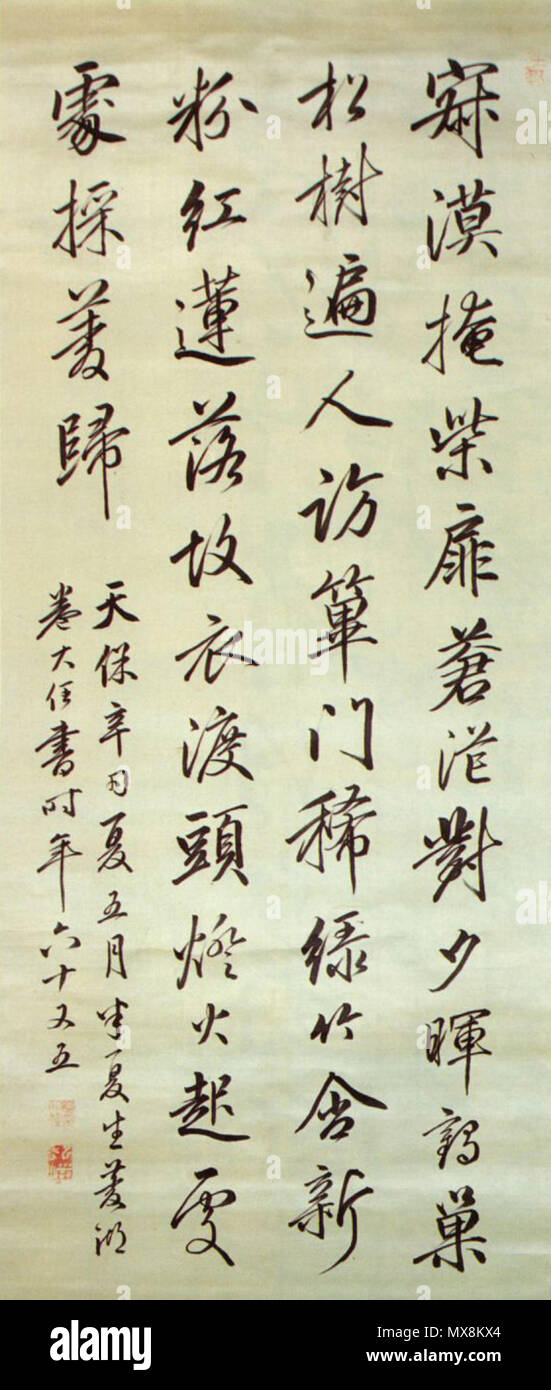 寂漠掩柴扉蒼茫對夕暉鶴巢
松樹遍人訪蓽門稀綠竹含新
粉紅蓮落故衣渡頭燈火起處
處採菱歸
天保辛丑夏五月半夏生菱湖
卷大任書時年六十又五
alamy
Image ID: MX8KX4
www.alamy.com